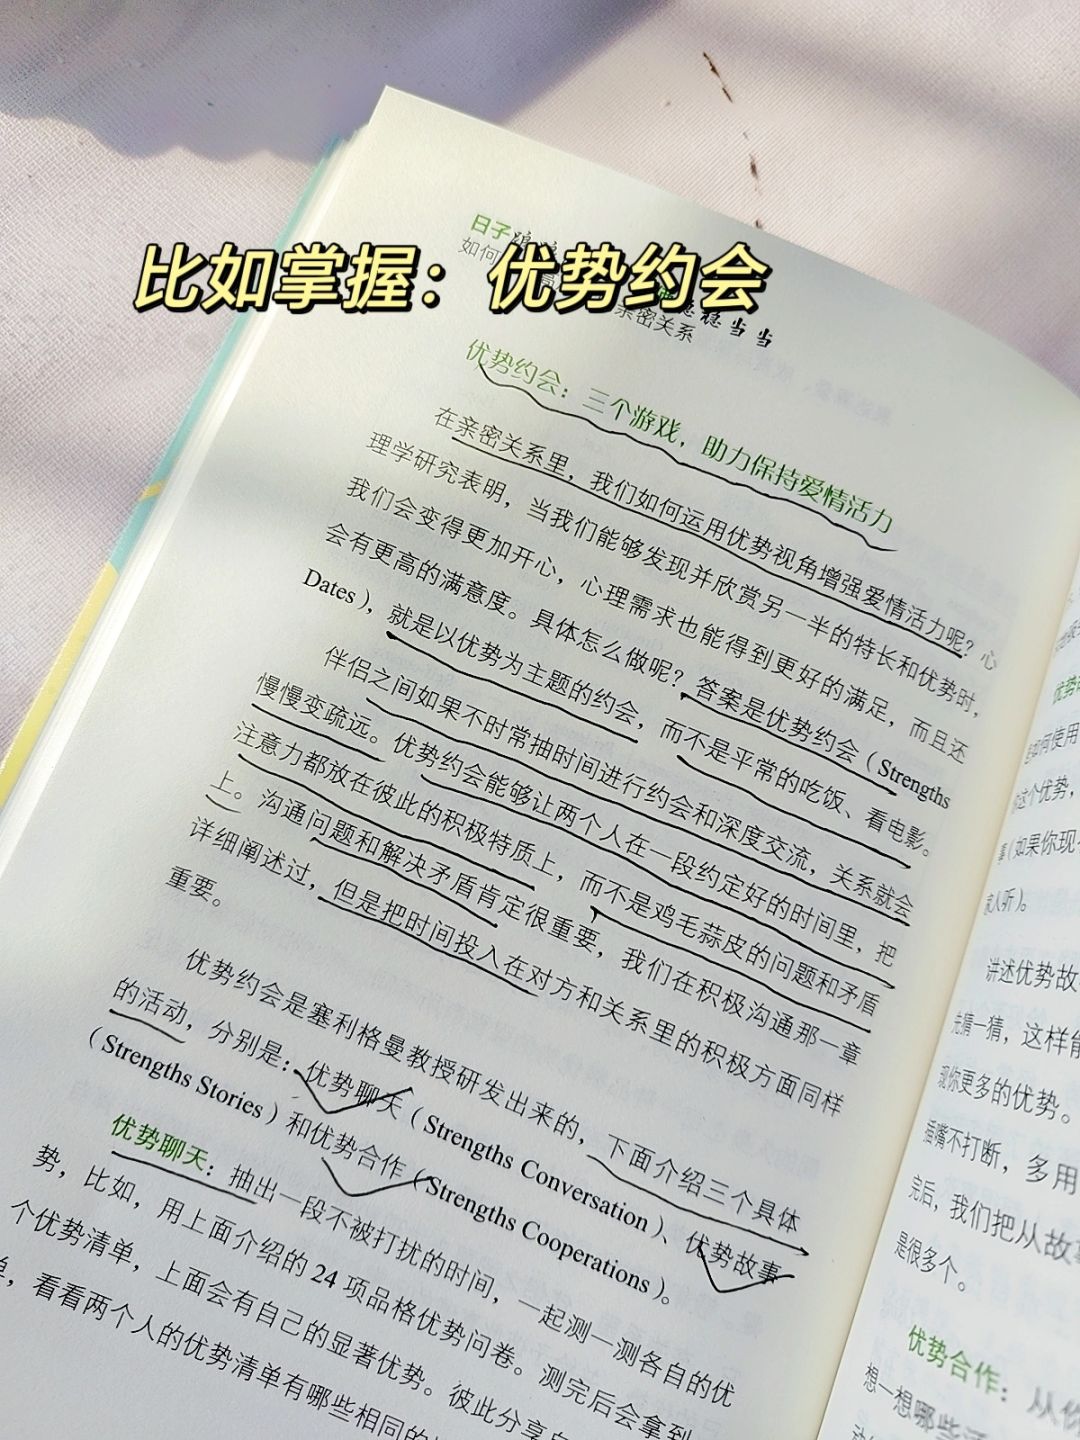 比如掌握：优势约会
日子
如何
稳稳当当
亲密关系
优势约会：三个游戏，助力保持爱情活力
在亲密关系里，我们如何运用优势视角增强爱情活力呢？心
理学研究表明，当我们能够发现并欣赏另一半的特长和优势时，
我们会变得更加开心，心理需求也能得到更好的满足，而且还
会有更高的满意度。具体怎么做呢？答案是优势约会（Strengths
Dates），就是以优势为主题的约会，而不是平常的吃饭、看电影。
伴侣之间如果不时常抽时间进行约会和深度交流，关系就会
慢慢变疏远。优势约会能够让两个人在一段约定好的时间里，把
注意力都放在彼此的积极特质上，而不是鸡毛蒜皮的问题和矛盾
上。沟通问题和解决矛盾肯定很重要，我们在积极沟通那一章
详细阐述过，但是把时间投入在对方和关系里的积极方面同样
重要。
优势约会是塞利格曼教授研发出来的，下面介绍三个具体
的活动，分别是：优势聊天（Strengths Conversation）、优势故事
（Strengths Stories）和优势合作（Strengths Cooperations）。
优势聊天：抽出一段不被打扰的时间，一起测一测各自的优
势，比如，用上面介绍的 24 项品格优势问卷。测完后会拿到
个优势清单，上面会有自己的显著优势。彼此分享
看看两个人的优势清单有哪些相同的
如何使用
这个优势，
（如果你现
人听）。
讲述优势故
先猜一猜，这样能
现你更多的优势。
插嘴不打断，多用
完后，我们把从故
是很多个。
优势合作：从你
想一想哪些活